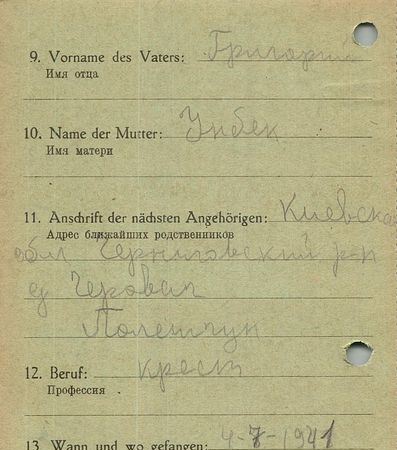 9. Vorname des Vaters: Григорий
Имя отца
10. Name der Mutter: Унбек
Имя матери
11. Anschrift der nächsten Angehörigen: Киевская
Адрес ближайших родственников
обл Черниговский р-н
Полещук
12. Beruf: крест
Профессия
13. Wann und wo gefangen: 4-7-1941